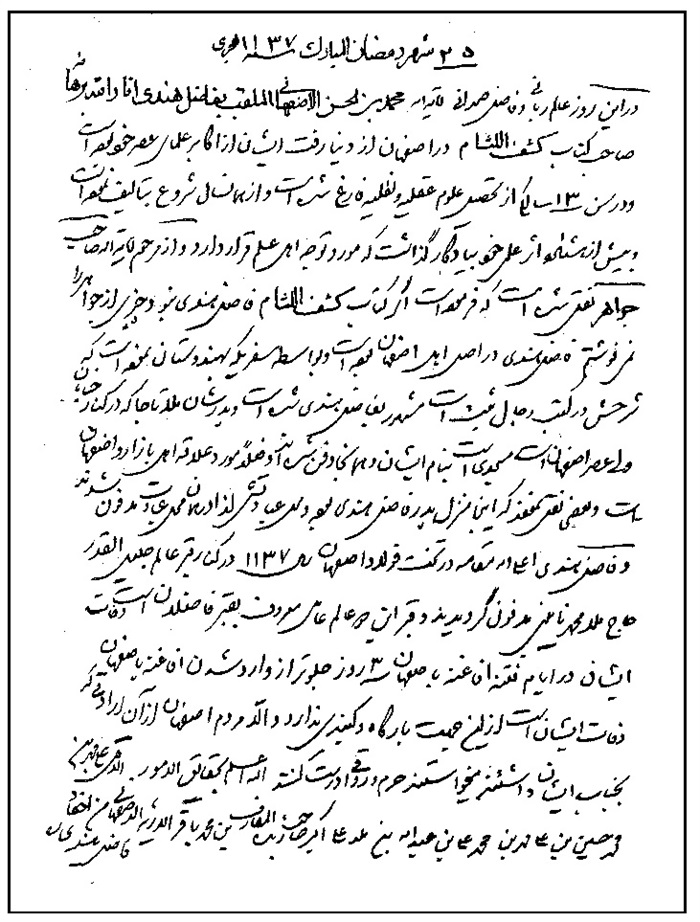 ۲۵ شهر رمضان المبارک سنه ۱۱۳۷ هجری
در این روز عالم ربانی و فاضل صمدانی آیة اله محمد بن الحسن الاصفهانی الملقب بفاضل هندی انار اله برهانه
صاحب کتاب کشف اللثام در اصفهان از دنیا رفت ایشان از اکابر علمای عصر خود بوده است
و در سن ۱۳ سالگی از تحصیل علوم عقلیه و نقلیه فارغ شده است و از همانسال شروع بتألیف نموده است
و بیش از هشتاد اثر علمی خود بیادگار گذاشت که مورد توجه اهل علم قرار دارد و از مرحوم آیة اله صاحب
جواهر نقل شده است که فرموده است اگر کتاب کشف اللثام فاضل هندی نبود چیزی از جواهر را
نمی نوشتم فاضل هندی در اصل اهل اصفهان بوده است و بواسطه سفریکه بهندوستان نموده است که
شرحش در کتب رجال ثبت است مشهور بفاضل هندی شده است و پدرشان ملا تاجا که در کنار
ولی عصر اصفهان است مسجدی است بنام ایشان و همانجا دفن شده اند و فعلاً مورد علاقه اهل بازار و اصفهان
است و بعضی نقل نمودند که این منزل پدر فاضل هندی بوده و محل عبادتش لذا در همان محل عبادت مدفون شدند
و فاضل هندی اعلی اله مقامه در تخت فولاد اصفهان ۱۱۳۷ در کنار قبر عالم جلیل القدر
حاج ملا محمد نائینی مدفون گردیدند و قبر این دو عالم عامل معروف بقبر فاضلان است وفات
ایشان در ایام فتنه افاغنه باصفهان ۳ روز جلوتر از وارد شدن افاغنه باصفهان
وفات ایشان است از این جهت بارگاه و گنبدی ندارد و الا مردم اصفهان از آن ارادتی که
بجناب ایشان داشتند میخواستند حرم و رواقی درست کنند اله اعلم بحقایق الامور
محمد حسین بن علی بن محمد علی بن عبداله بن علی اکبر صاحب زبدة المعارف بن محمد باقر الاصفهانی من احفاد
فاضل هندی